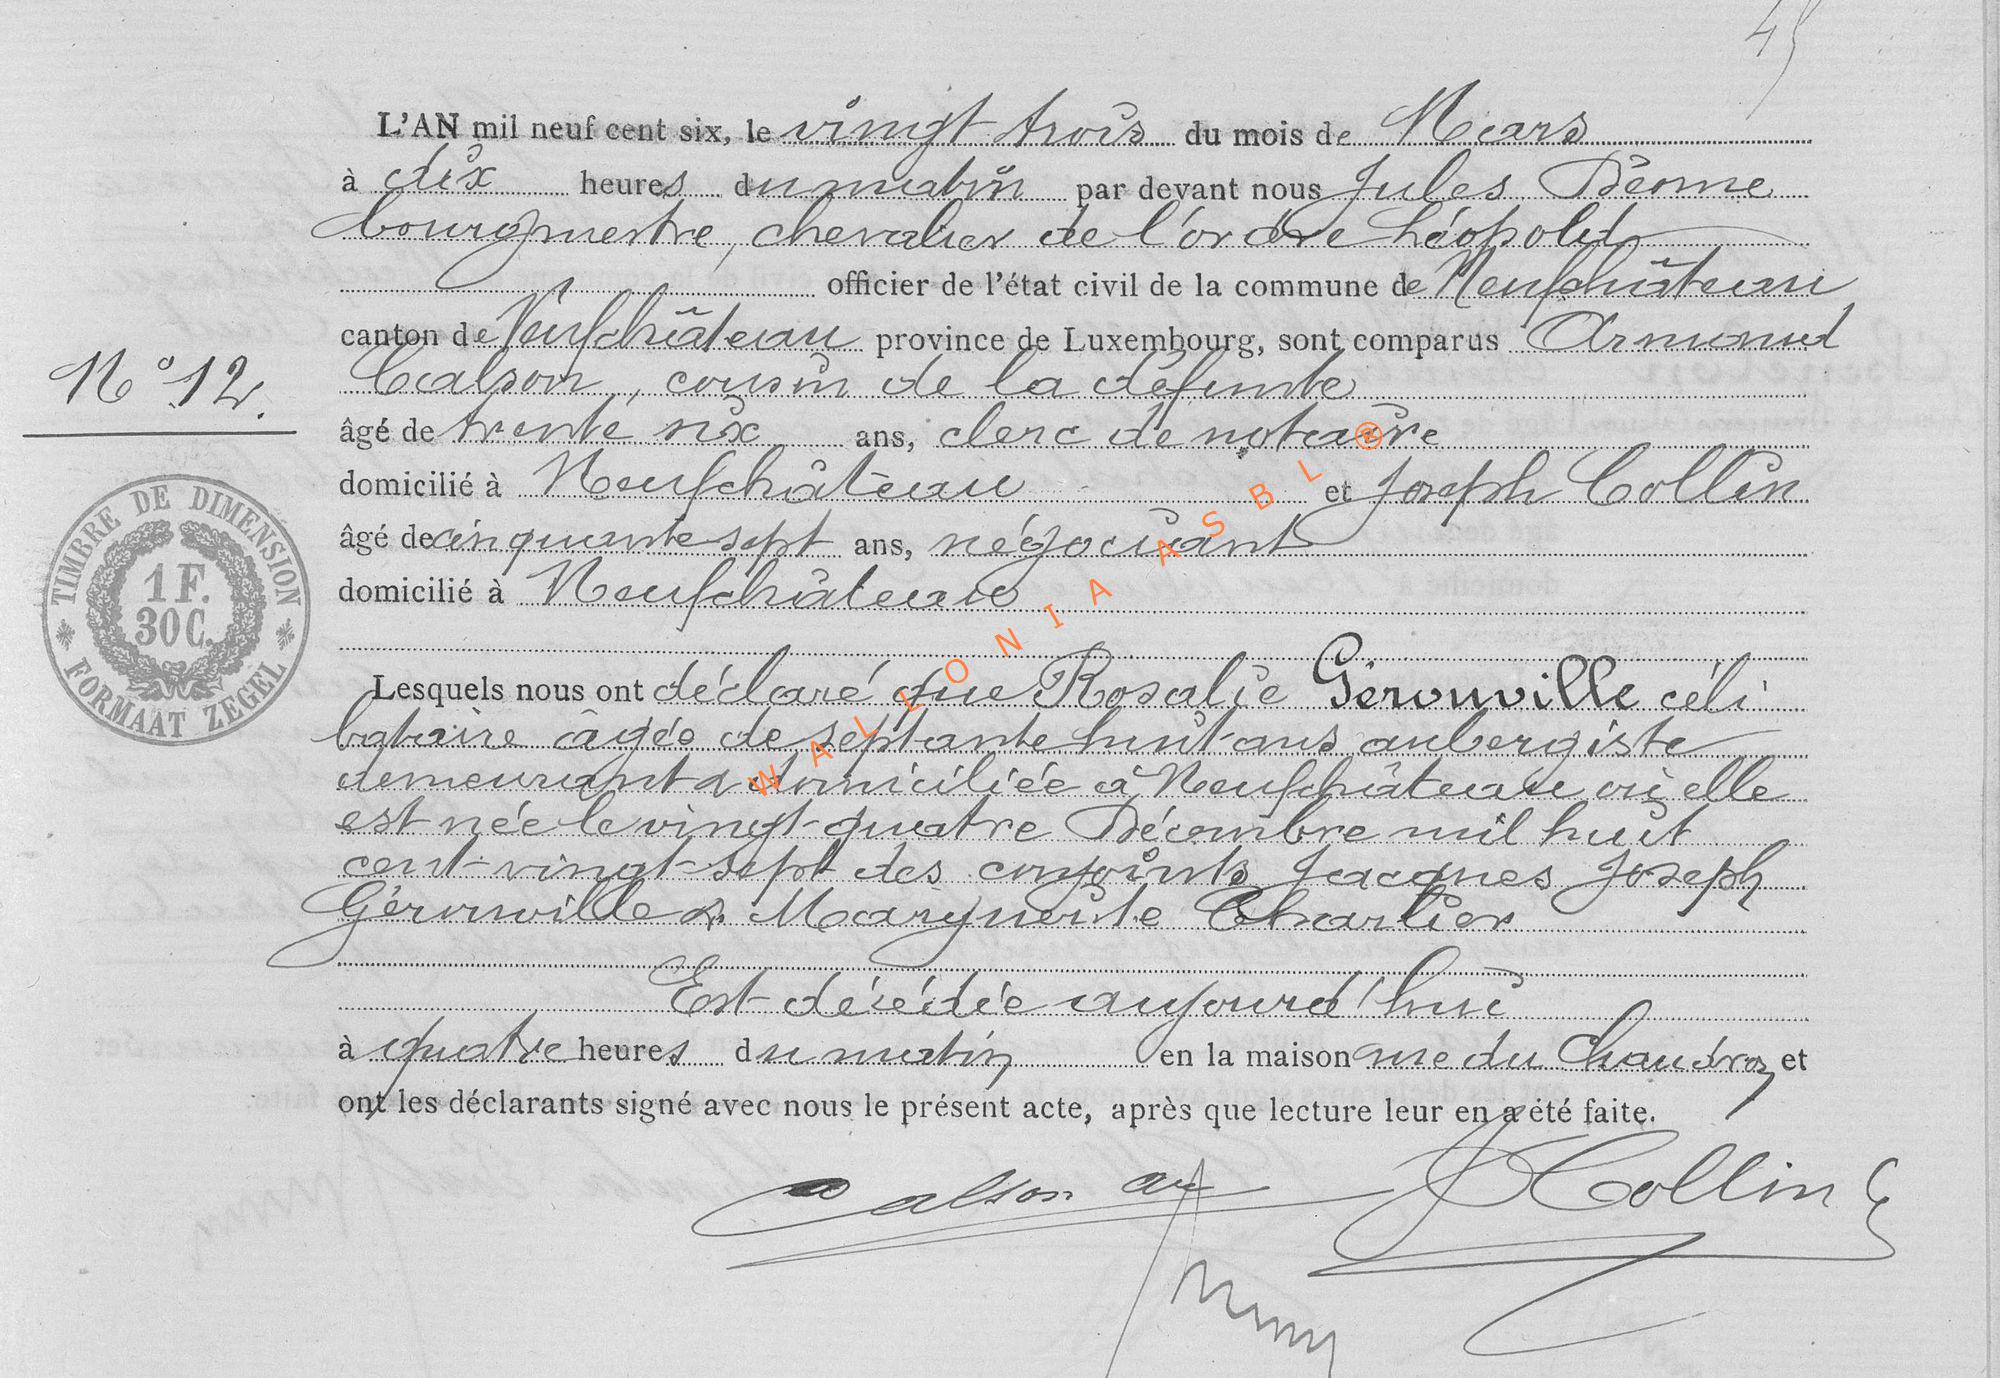 45
L'AN mil neuf cent six, le vingt trois du mois de Mars
à dix heures du matin par devant nous Jules
bourgmestre, chevalier de l'ordre Léopold
officier de l'état civil de la commune de Neufchâteau
canton de Neufchâteau province de Luxembourg, sont comparus Armand
N° 12. Calson, cousin de la défunte
âgé de trente six ans, clerc de notaire
domicilié à Neufchâteau et Joseph Collin
âgé de cinquante sept ans, négociant
domicilié à Neufchâteau
TIMBRE DE DIMENSION
1 F.
30 C.
FORMAAT ZEGEL
WALLONIA ASBL ®
Lesquels nous ont déclaré que Rosalie Gérouville céli
bataire âgée de septante huit ans aubergiste
demeurant & domiciliée à Neufchâteau où elle
est née le vingt-quatre Décembre mil huit
cent-vingt-sept des conjoints Jacques Joseph
Gérouville & Marguerite Charlier
Est décédée aujourd'hui
à quatre heures du matin en la maison rue du Chaudron et
ont les déclarants signé avec nous le présent acte, après que lecture leur en a été faite.
Calson ar JCollin